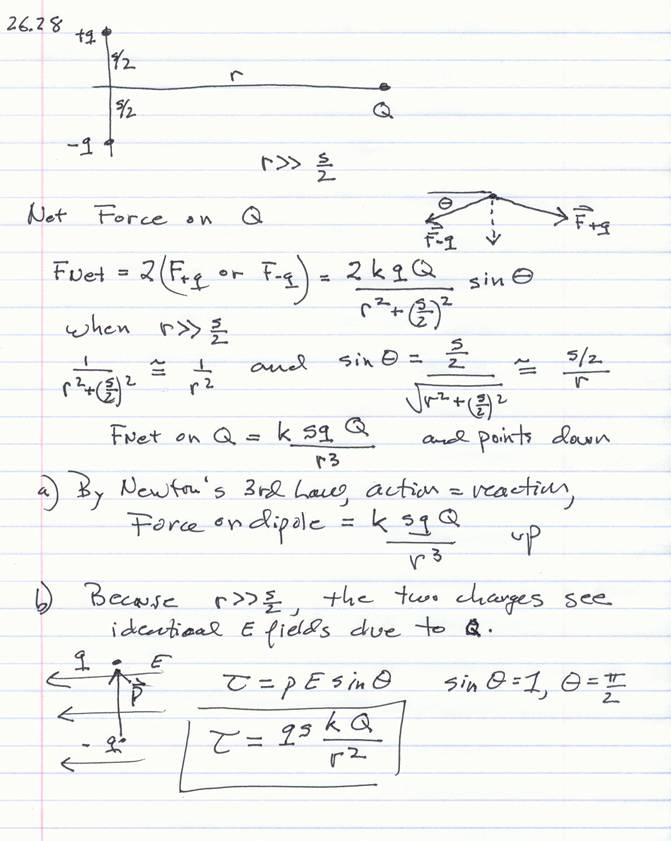 26.28
+q
s/2
r
s/2
Q
-q
r >> s/2
θ
F⃗-q F⃗+q
Net Force on Q
FNet = 2(F+q or F-q) = 2kqQ / (r² + (s/2)²) sin θ
when r >> s/2
1 / (r² + (s/2)²) ≅ 1/r² and sin θ = (s/2) / √(r² + (s/2)²) ≅ (s/2)/r
FNet on Q = k sq Q / r³ and points down
a) By Newton's 3rd Law, action = reaction,
Force on dipole = k sq Q / r³ up
b) Because r >> s/2, the two charges see
identical E fields due to Q.
q E
p⃗
-q
τ = pE sin θ sin θ = 1, θ = π/2
τ = qs kQ / r²